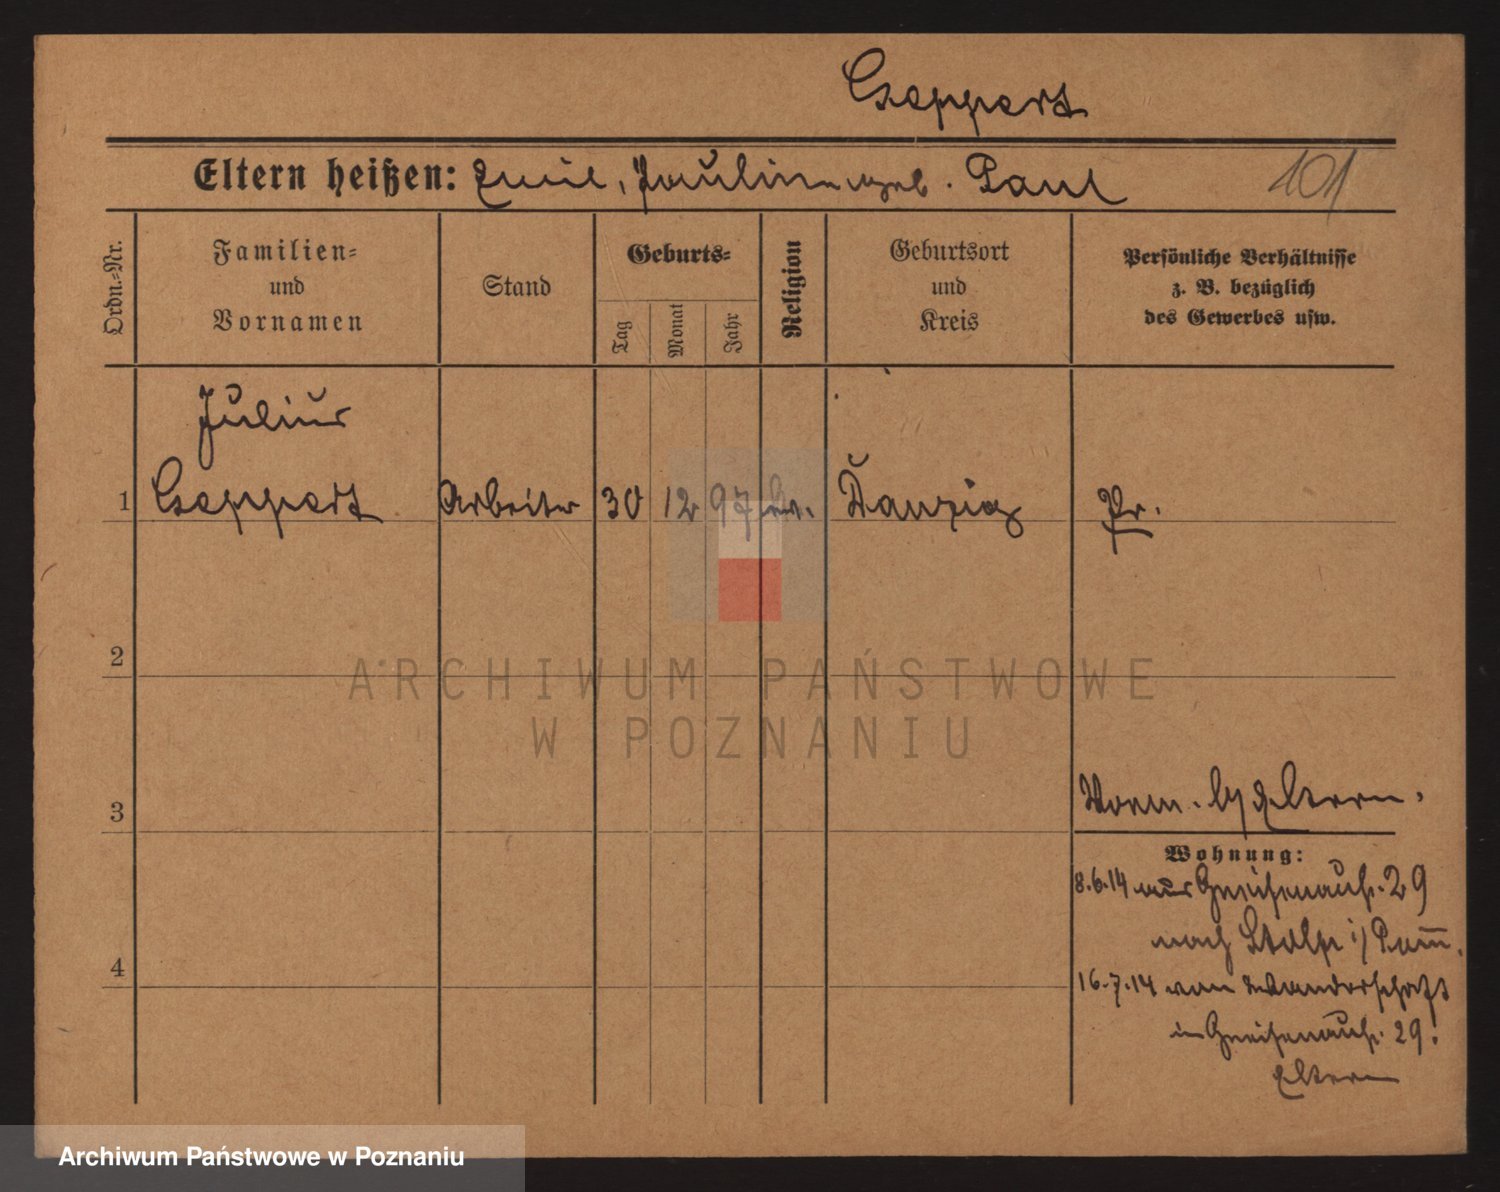 Geppert
Eltern heißen: Emil, Pauline geb. Paul
101
Ordn.-Nr.
Familien-
und
Vornamen
Stand
Geburts-
Tag
Monat
Jahr
Religion
Geburtsort
und
Kreis
Persönliche Verhältnisse
z. B. bezüglich
des Gewerbes usw.
Julius
1 Geppert Arbeiter 30 12 97 ev. Danzig Pr.
2
ARCHIWUM PAŃSTWOWE
W POZNANIU
3
Vorm. b/ Eltern.
Wohnung:
8.6.14 aus Gneisenaustr. 29
nach Stolp i/ Pom.
4
16.7.14 von Wanderschaft
in Gneisenaustr. 29.
Eltern
Archiwum Państwowe w Poznaniu